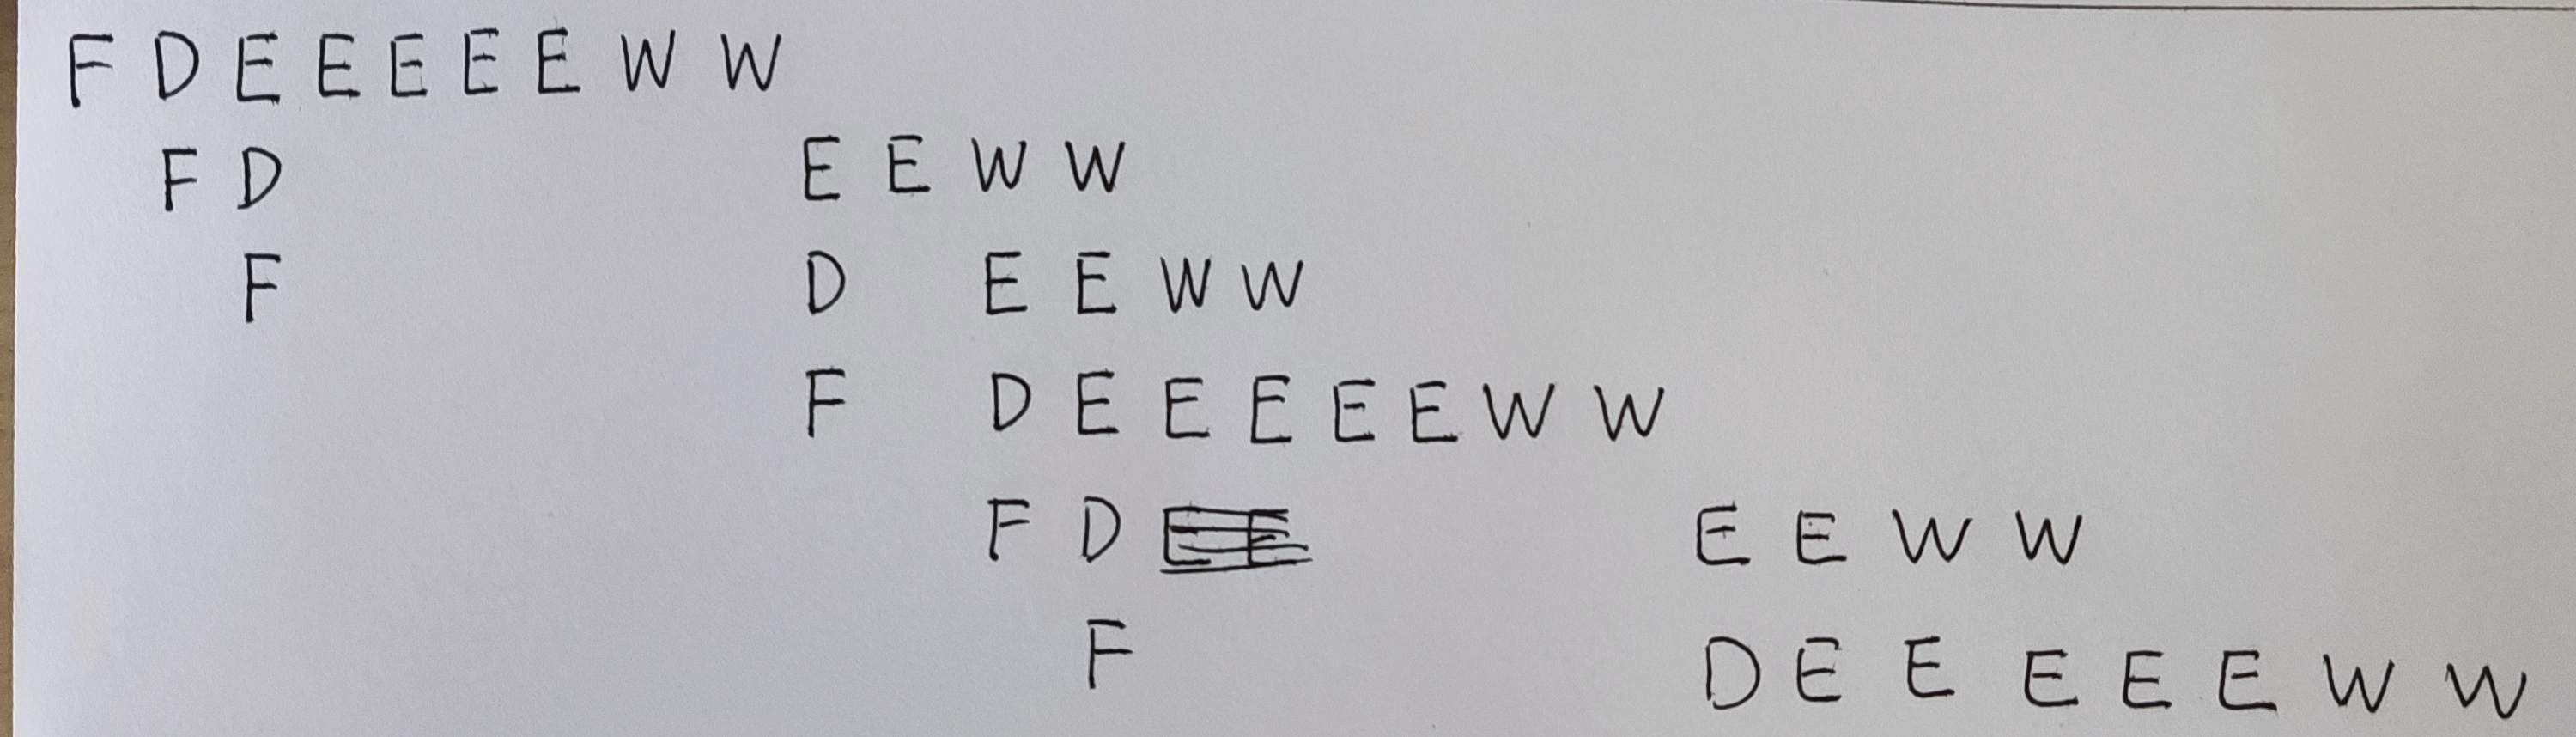 F D E E E E E W W
F D E E W W
F D E E W W
F D E E E E E W W
F D E E W W
F D E E E E E W W